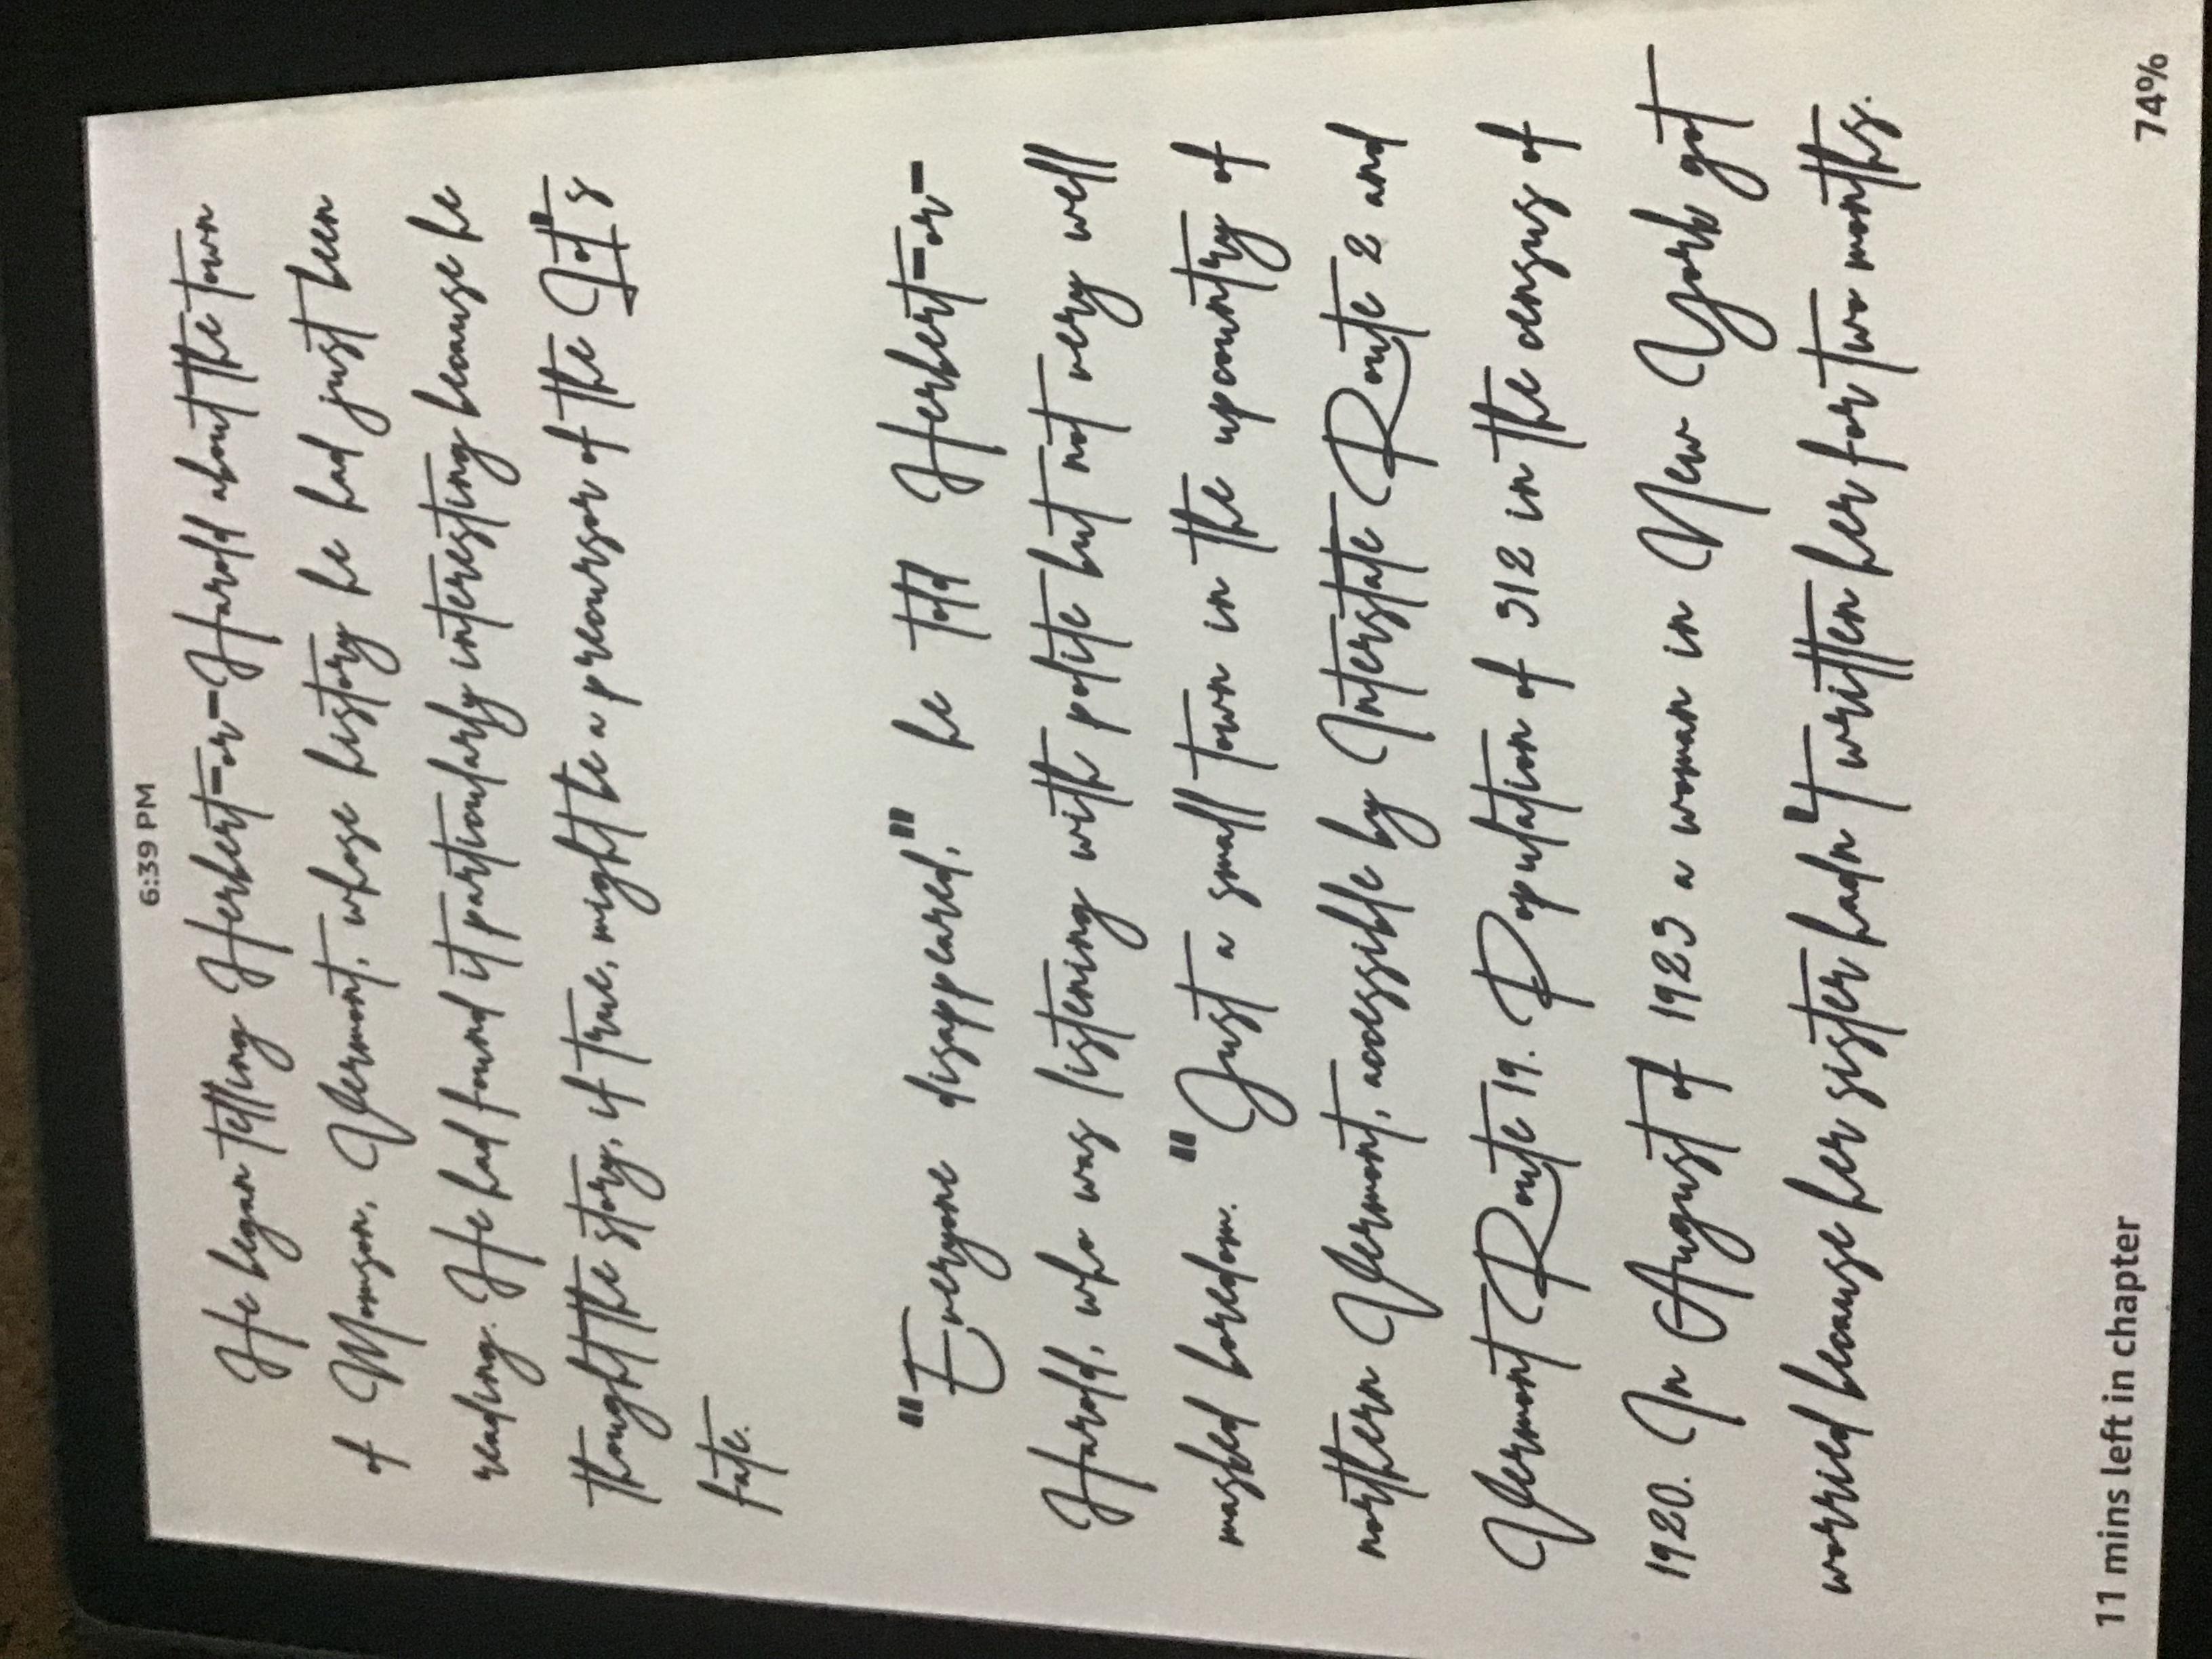 6:39 PM
He began telling Herbert-or-Harold about the town
of Momson, Vermont, whose history he had just been
reading. He had found it particularly interesting because he
thought the story, if true, might be a precursor of the Lot's
fate.
"Everyone disappeared," he told Herbert-or-
Harold, who was listening with polite but not very well
masked boredom. "Just a small town in the upcountry of
northern Vermont, accessible by Interstate Route 2 and
Vermont Route 19. Population of 312 in the census of
1920. In August of 1923 a woman in New York got
worried because her sister hadn't written her for two months.
11 mins left in chapter 74%